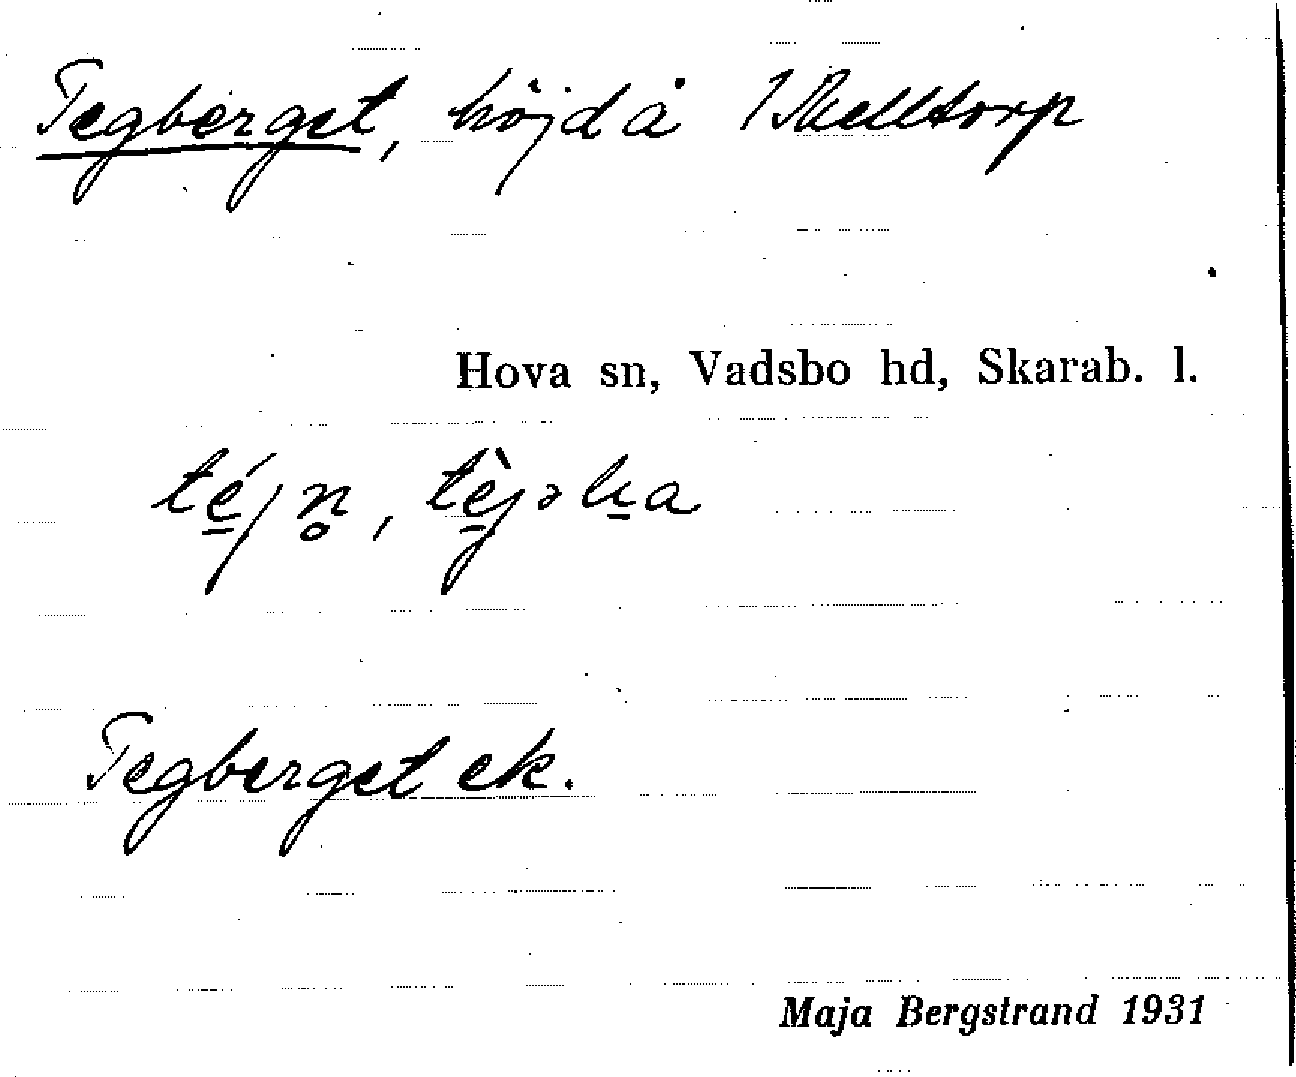 Tegberget, höjd å 1 Skelltorp
Hova sn, Vadsbo hd, Skarab. l.
té̱jn̥, tè̱jəḵa
Tegberget ek.
Maja Bergstrand 1931